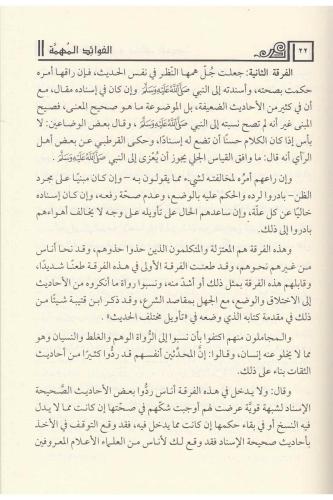 ٢٢
الفوائد المهمّة
الفرقة الثانية: جعلت جُلّ همها النَّظر في نفس الحديث، فإن راقها أمره
حكمت بصحته، وأسندته إلى النبي ﷺ وإن كان في إسناده مقال، مع
أن في كثير من الأحاديث الضعيفة، بل الموضوعة ما هو صحيح المعنى، فصيح
المبنى غير أنه لم تصح نسبته إلى النبي ﷺ، وقال بعض الوضاعين: لا
بأس إذا كان الكلام حسنًا أن تضع له إسنادًا، وحكى القرطبي عن بعض أهل
الرأي أنه قال: ما وافق القياس الجلي يجوز أن يُعزى إلى النبي ﷺ.
وإن راعهم أمرُه لمخالفته لشيء مما يقولون به –وإن كان مبنيًا على مجرد
الظن– بادروا لرده والحكم عليه بالوضع، وعدم صحّة رفعه، وإن كان إسناده
خاليًا عن كل علّة، وإن ساعدهم الحال على تأويله على وجه لا يخالف أهواءهم
بادروا إلى ذلك.
وهذه الفرقة هم المعتزلة والمتكلمون الذين حذوا حذوهم، وقد نحا أناس
من غيرهم نحوهم، وقد طعنت الفرقة الأولى في هذه الفرقة طعنًا شديدًا،
وقابلهم هذه الفرقة بمثل ذلك أو أشدّ منه، ونسبوا رواة ما أنكروه من الأحاديث
إلى الاختلاق والوضع، مع الجهل بمقاصد الشرع، وقد ذكر ابن قتيبة شيئًا من
ذلك في مقدمة كتابه الذي وضعه في «تأويل مختلف الحديث».
والمجاملون منهم اكتفوا بأن نسبوا إلى الرُّواة الوهم والغلط والنسيان وهو
مما لا يخلو عنه إنسان، وقالوا: إنَّ المحدِّثين أنفسهم قد ردُّوا كثيرًا من أحاديث
الثقات بناء على ذلك.
وقال: ولا يدخل في هذه الفرقة أناس ردُّوا بعض الأحاديث الصَّحيحة
الإسناد لشبهة قويَّة عرضت لهم أوجبت شكّهم في صحّتها إن كانت مما لا يدل
فيه النسخ أو في بقاء حكمها إن كانت مما يدخل فيه، فقد وقع التوقف في الأخذ
بأحاديث صحيحة الإسناد فقد وقع لك لأناس من العلماء الأعلام المعروفين